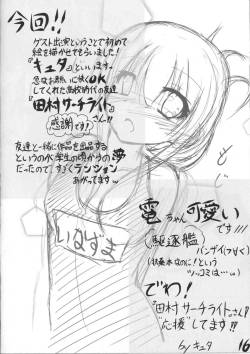 今回!!
ゲスト出演ということで初めて
絵を描かせてもらいました!
『キュタ』といいます。
急なお願いに快くOK
してくれた高校時代の友達
『田村サーチライト』さん!!
感謝です!
友達と一緒に作品を出品する
というのは学生の頃からの夢
だったので、すごくテンション
あがってますw
いなずま
電ちゃん可愛い
です!!!
駆逐艦
バンザイ
でわ!
『田村サーチライト』さん
応援してます!!
by キュタ
16